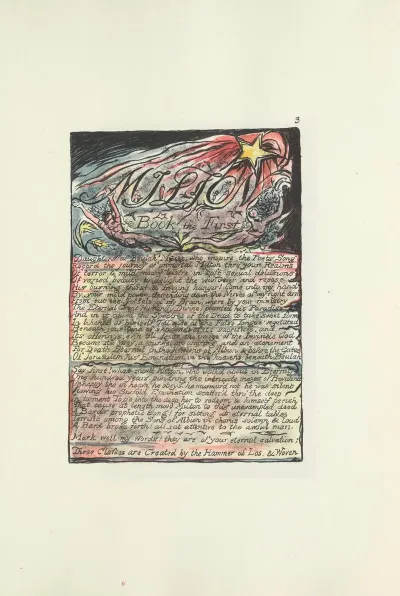 3
MILTON
Book the First
Daughters of Beulah! Muses who inspire the Poets Song
Record the journey of immortal Milton thro your Realms
Of terror & mild moony lustre, in soft sexual delusions
Of varied beauty, to delight the wanderer and repose
His burning thirst & freezing hunger! Come into my hand
By your mild power; descending down the Nerves of my right arm
From out the Portals of my Brain, where by your ministry
The Eternal Great Humanity Divine planted his Paradise,
And in it caus'd the Spectres of the Dead to take sweet forms
In likeness of himself. Tell also of the False Tongue! vegetated
Beneath your land of shadows: of its sacrifices, and
Its offerings; even till Jesus, the image of the Invisible God
Became its prey; a curse, an offering, and an atonement
For Death Eternal in the heavens of Albion, & before the Gates
Of Jerusalem his Emanation, in the heavens beneath Beulah
Say first! what mov'd Milton, who walkd about in Eternity
One hundred years, pondring the intricate mazes of Providence
Unhappy tho in heav'n, he obey'd, he murmur'd not, he was silent
Viewing his Sixfold Emanation scatter'd thro' the deep
In torment! To go into the deep her to redeem & himself perish
What cause at length mov'd Milton to this unexampled deed
A Bards prophetic Song! for sitting at eternal tables,
Terrific among the Sons of Albion in chorus solemn & loud
A Bard broke forth! all sat attentive to the awful man.
Mark well my words! they are of your eternal salvation:
Three Classes are Created by the Hammer of Los, & Woven